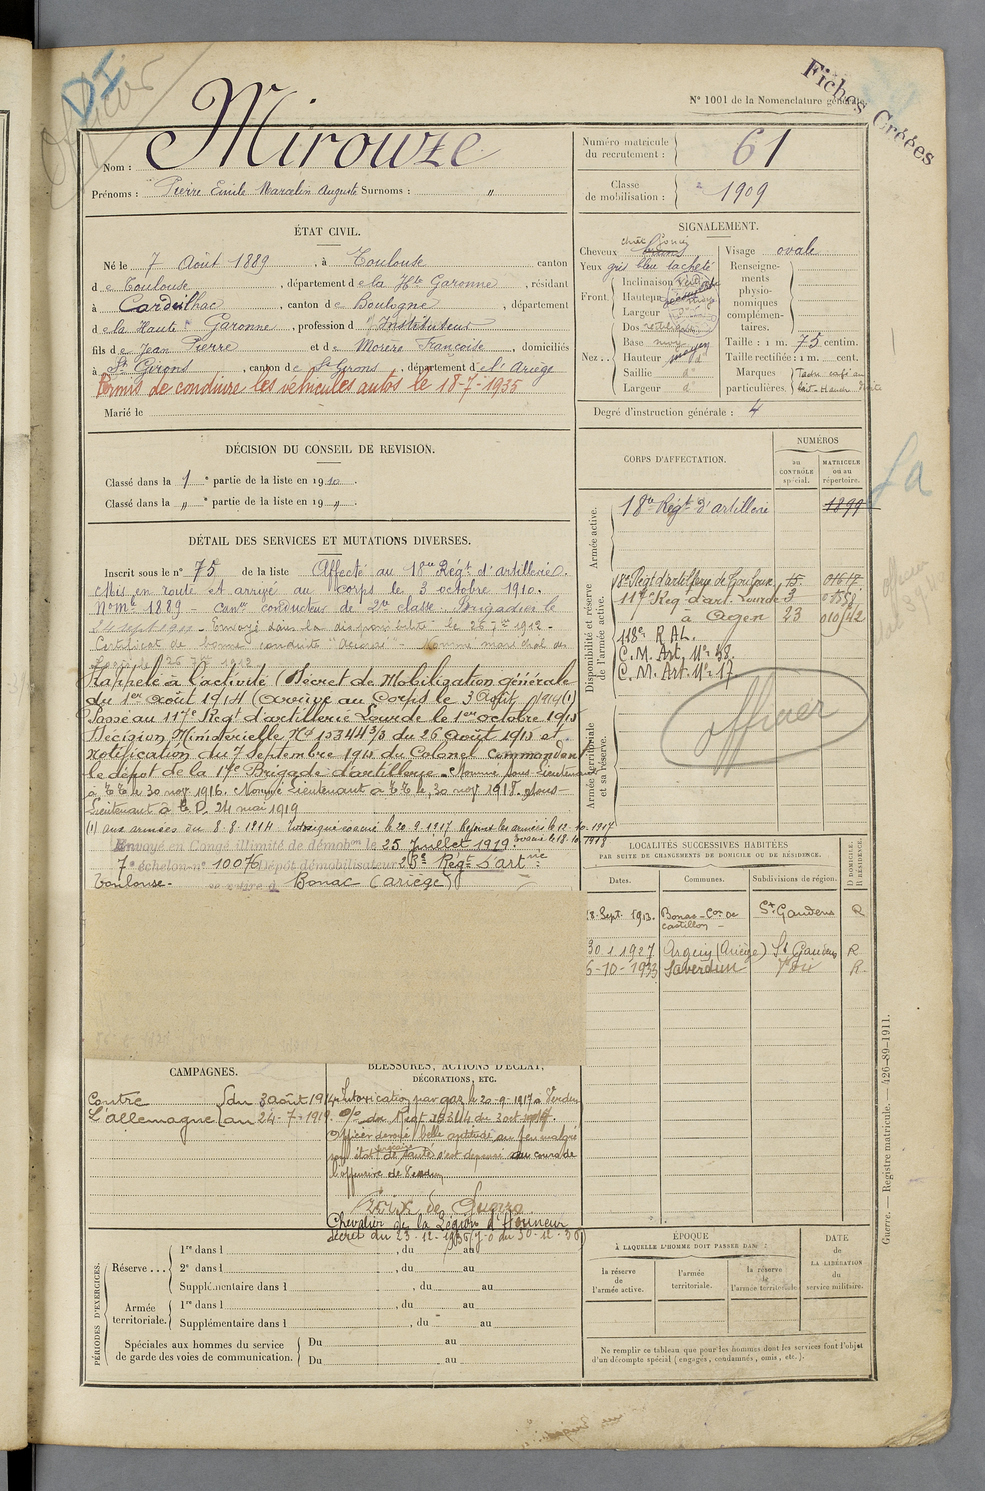 Officier
DI
Fiches Créées
N° 1001 de la Nomenclature générale.
Nom : Mirouze
Prénoms : Pierre Emile Marcelin Auguste Surnoms : "
Numéro matricule du recrutement : 61
Classe de mobilisation : 1909
ÉTAT CIVIL.
Né le 7 Août 1889, à Toulouse canton
de Toulouse, département de la Hte Garonne, résidant
à Cardeilhac, canton de Boulogne, département
de la Haute Garonne, profession d'Instituteur
fils de Jean Pierre et de Morère Françoise, domiciliés
à St Girons, canton de St Girons, département de l'Ariège
Permis de conduire les véhicules autos le 18-7-1935
Marié le
SIGNALEMENT.
Cheveux
Yeux gris bleu tacheté
Front. Inclinaison
Hauteur
Largeur
Nez. Dos
Base moy
Hauteur moyen
Saillie d°
Largeur d°
Visage ovale
Renseignements physionomiques complémentaires.
Taille : 1 m. 75 centim.
Taille rectifiée : 1 m. cent.
Marques particulières.
Degré d'instruction générale : 4
DÉCISION DU CONSEIL DE REVISION.
Classé dans la 1e partie de la liste en 1910
Classé dans la " e partie de la liste en 19 "
DÉTAIL DES SERVICES ET MUTATIONS DIVERSES.
Inscrit sous le n° 75 de la liste Affecté au 18e Régt d'artillerie.
Mis en route et arrivé au corps le 3 octobre 1910.
N° Mle 1889 - Canr conducteur de 2me classe. Brigadier le
24 sept 1911 - Envoyé dans la disponibilité le 26 7bre 1912 -
Certificat de bonne conduite "Accordé" - Nommé maréchal des
logis le 26 7bre 1912
Rappelé à l'activité (Décret de Mobilisation générale
du 1er août 1914 (Arrivé au Corps le 3 Août 1914 (1)
Passé au 117e Rég. d'artillerie Lourde le 1er octobre 1915
Décision Ministérielle No 15344 3/3 du 26 Août 1915 et
notification du 7 Septembre 1915 du Colonel commandant
le dépot de la 17e Brigade d'artillerie. Nommé sous Lieutenant
à TT le 30 nov 1916. Nommé Lieutenant à TT le 30 nov 1918. Sous-
Lieutenant à T.P. 24 mai 1919
(1) aux armées du 8.8.1914 Intoxiqué évacué le 20.9.1917 Rejoint les armées le 12-10-1917
Envoyé en Congé illimité de démobon le 25 Juillet 1919.
7e échelon n° 10076 Dépôt démobilisateur 23e Régt d'artie
Toulouse. se retire à Bonac (ariège)
CORPS D'AFFECTATION.
NUMÉROS
au CONTRÔLE spécial.
MATRICULE ou au répertoire.
Armée active.
18e Régt d'artillerie 1899
Disponibilité et réserve de l'armée active.
18e Régt d'artillerie de Toulouse 15
117e Reg d'art. Lourde 3
à Agen 23 010/42
118e R A L.
C. M. Art. No 58.
C. M. Art. No 17.
Armée territoriale et sa réserve.
officier
LOCALITÉS SUCCESSIVES HABITÉES
PAR SUITE DE CHANGEMENTS DE DOMICILE OU DE RÉSIDENCE.
Dates. Communes. Subdivisions de région. D DOMICILE. R RÉSIDENCE.
18-Sept. 1913. Bonac - Con de Castillon - St Gaudens R
30 1 1927 Argein (Ariège) St Gaudens R
6-10-1933 Saverdun R
CAMPAGNES.
Contre L'allemagne du 3 août 1914 au 24-7-1919.
BLESSURES, ACTIONS D'ÉCLAT, DÉCORATIONS, ETC.
Intoxication par gaz le 20-9-1917 à Verdun
O/o du Régt N° 344 du 3 oct 1917.
Officier dévoué belle aptitude au feu malgré
son état précaire de santé s'est dépensé au cours de
l'offensive de Verdun
Croix de Guerre
Chevalier de la Légion d'Honneur
décret du 23-12-1936 (J.O du 30-12-36)
PÉRIODES D'EXERCICES.
Réserve... 1re dans l , du au
2e dans l , du au
Supplémentaire dans l , du au
Armée territoriale. 1re dans l , du au
Supplémentaire dans l , du au
Spéciales aux hommes du service de garde des voies de communication. Du au
Du au
ÉPOQUE
À LAQUELLE L'HOMME DOIT PASSER DANS
la réserve de l'armée active.
l'armée territoriale.
la réserve de l'armée territoriale.
DATE de LA LIBÉRATION du service militaire.
Ne remplir ce tableau que pour les hommes dont les services font l'objet
d'un décompte spécial (engagés, condamnés, omis, etc.).
Guerre. — Registre matricule. — 426-89-1911.